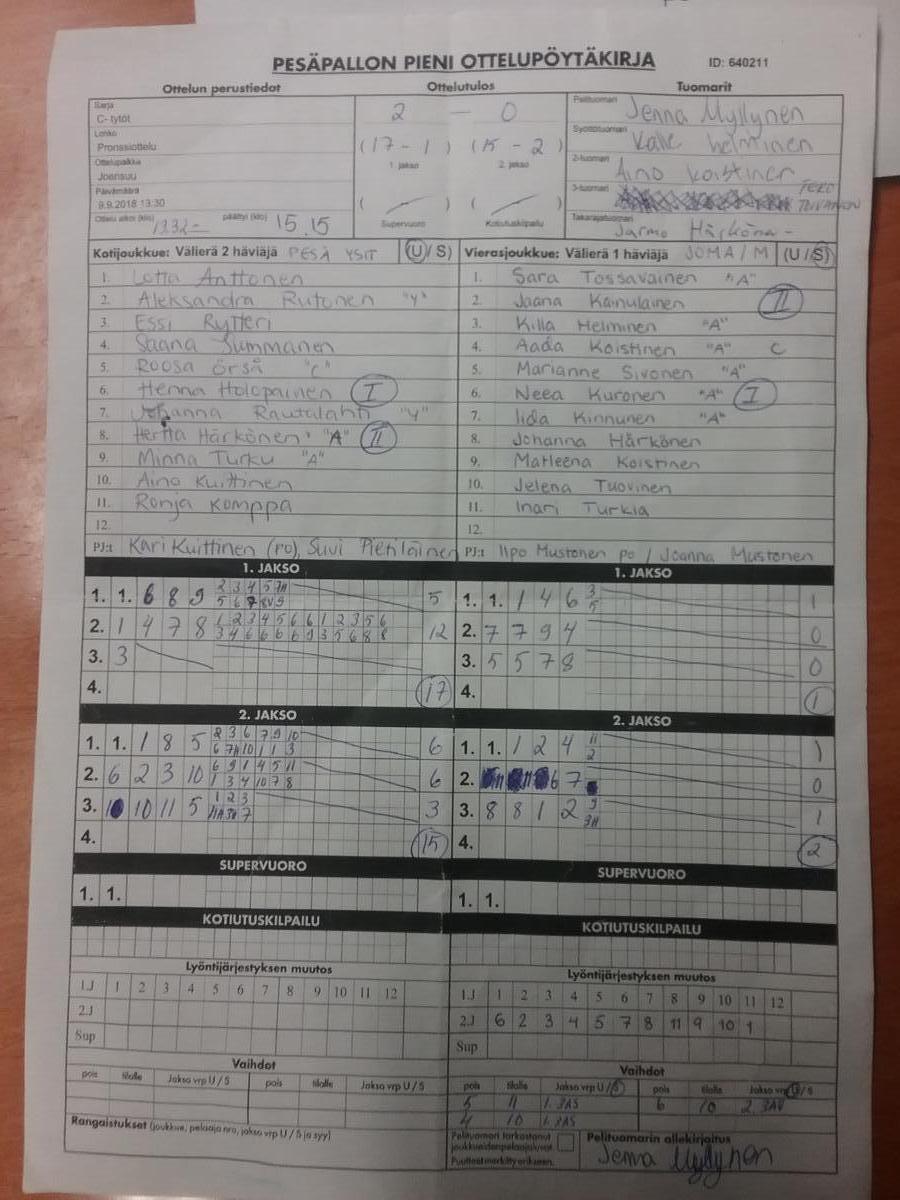 PESÄPALLON PIENI OTTELUPÖYTÄKIRJA ID: 640211
Ottelun perustiedot Ottelutulos Tuomarit
Sarja
C- tytöt
Lohko
Pronssiottelu
Ottelupaikka
Joensuu
Päivämäärä
9.9.2018 13:30
Ottelu alkoi (klo) 13.32 - päättyi (klo) 15.15
2 — 0
(17 - 1) (15 - 2)
1. jakso 2. jakso
Supervuoro Kotiutuskilpailu
Pelituomari Jenna Myllynen
Syöttötuomari Kalle Helminen
2-tuomari Aino Koistinen
3-tuomari TERO TOIVANEN
Takarajatuomari Jarmo Härköne-
Kotijoukkue: Välierä 2 häviäjä PESÄ YSIT (U/S)
1. Lotta Anttonen
2. Aleksandra Rutonen "Y"
3. Essi Rytteri
4. Saana Summanen
5. Roosa Örså "C"
6. Henna Holopainen I
7. Johanna Rautalahti "Y"
8. Hertta Härkönen "A" II
9. Minna Turku "A"
10. Aino Kuittinen
11. Ronja Komppa
12.
PJ:t Kari Kuittinen (PO), Suvi Pietiläinen
Vierasjoukkue: Välierä 1 häviäjä JOMA/M (U/S)
1. Sara Tossavainen "A"
2. Jaana Kainulainen II
3. Killa Helminen "A"
4. Aada Koistinen "A" C
5. Marianne Sivonen "A"
6. Neea Kuronen "A" I
7. Iida Kinnunen "A"
8. Johanna Härkönen
9. Matleena Koistinen
10. Jelena Tuovinen
11. Inari Turkia
12.
PJ:t Ilpo Mustonen PO / Joanna Mustonen
1. JAKSO
1. 1. 6 8 9 5
2. 1 4 7 8 12
3. 3
4. 17
1. JAKSO
1. 1. 1 4 6 3 5 1
2. 7 7 9 4 0
3. 5 5 7 8 0
4. 1
2. JAKSO
1. 1. 1 8 5 6
2. 6 2 3 10 6
3. 10 11 5 3
4. 15
2. JAKSO
1. 1. 1 2 4 11 2 1
2. 6 7 0
3. 8 8 1 2 1
4. 2
SUPERVUORO
1. 1.
SUPERVUORO
1. 1.
KOTIUTUSKILPAILU
KOTIUTUSKILPAILU
Lyöntijärjestyksen muutos
1.J 1 2 3 4 5 6 7 8 9 10 11 12
2.J
Sup
Lyöntijärjestyksen muutos
1.J 1 2 3 4 5 6 7 8 9 10 11 12
2.J 6 2 3 4 5 7 8 11 9 10 1
Sup
Vaihdot
pois tilalle Jakso vrp U / S pois tilalle Jakso vrp U / S
Rangaistukset (joukkue, pelaaja nro, jakso vrp U / S ja syy)
Vaihdot
pois tilalle Jakso vrp U / S pois tilalle Jakso vrp U / S
5 11 1. 3AS 6 10 2. 3AU
4 10 1. 3AS
Pelituomari tarkastanut
joukkueiden pelaajaluvat.
Puutteet merkitty erikseen.
Pelituomarin allekirjoitus
Jenna Myllynen